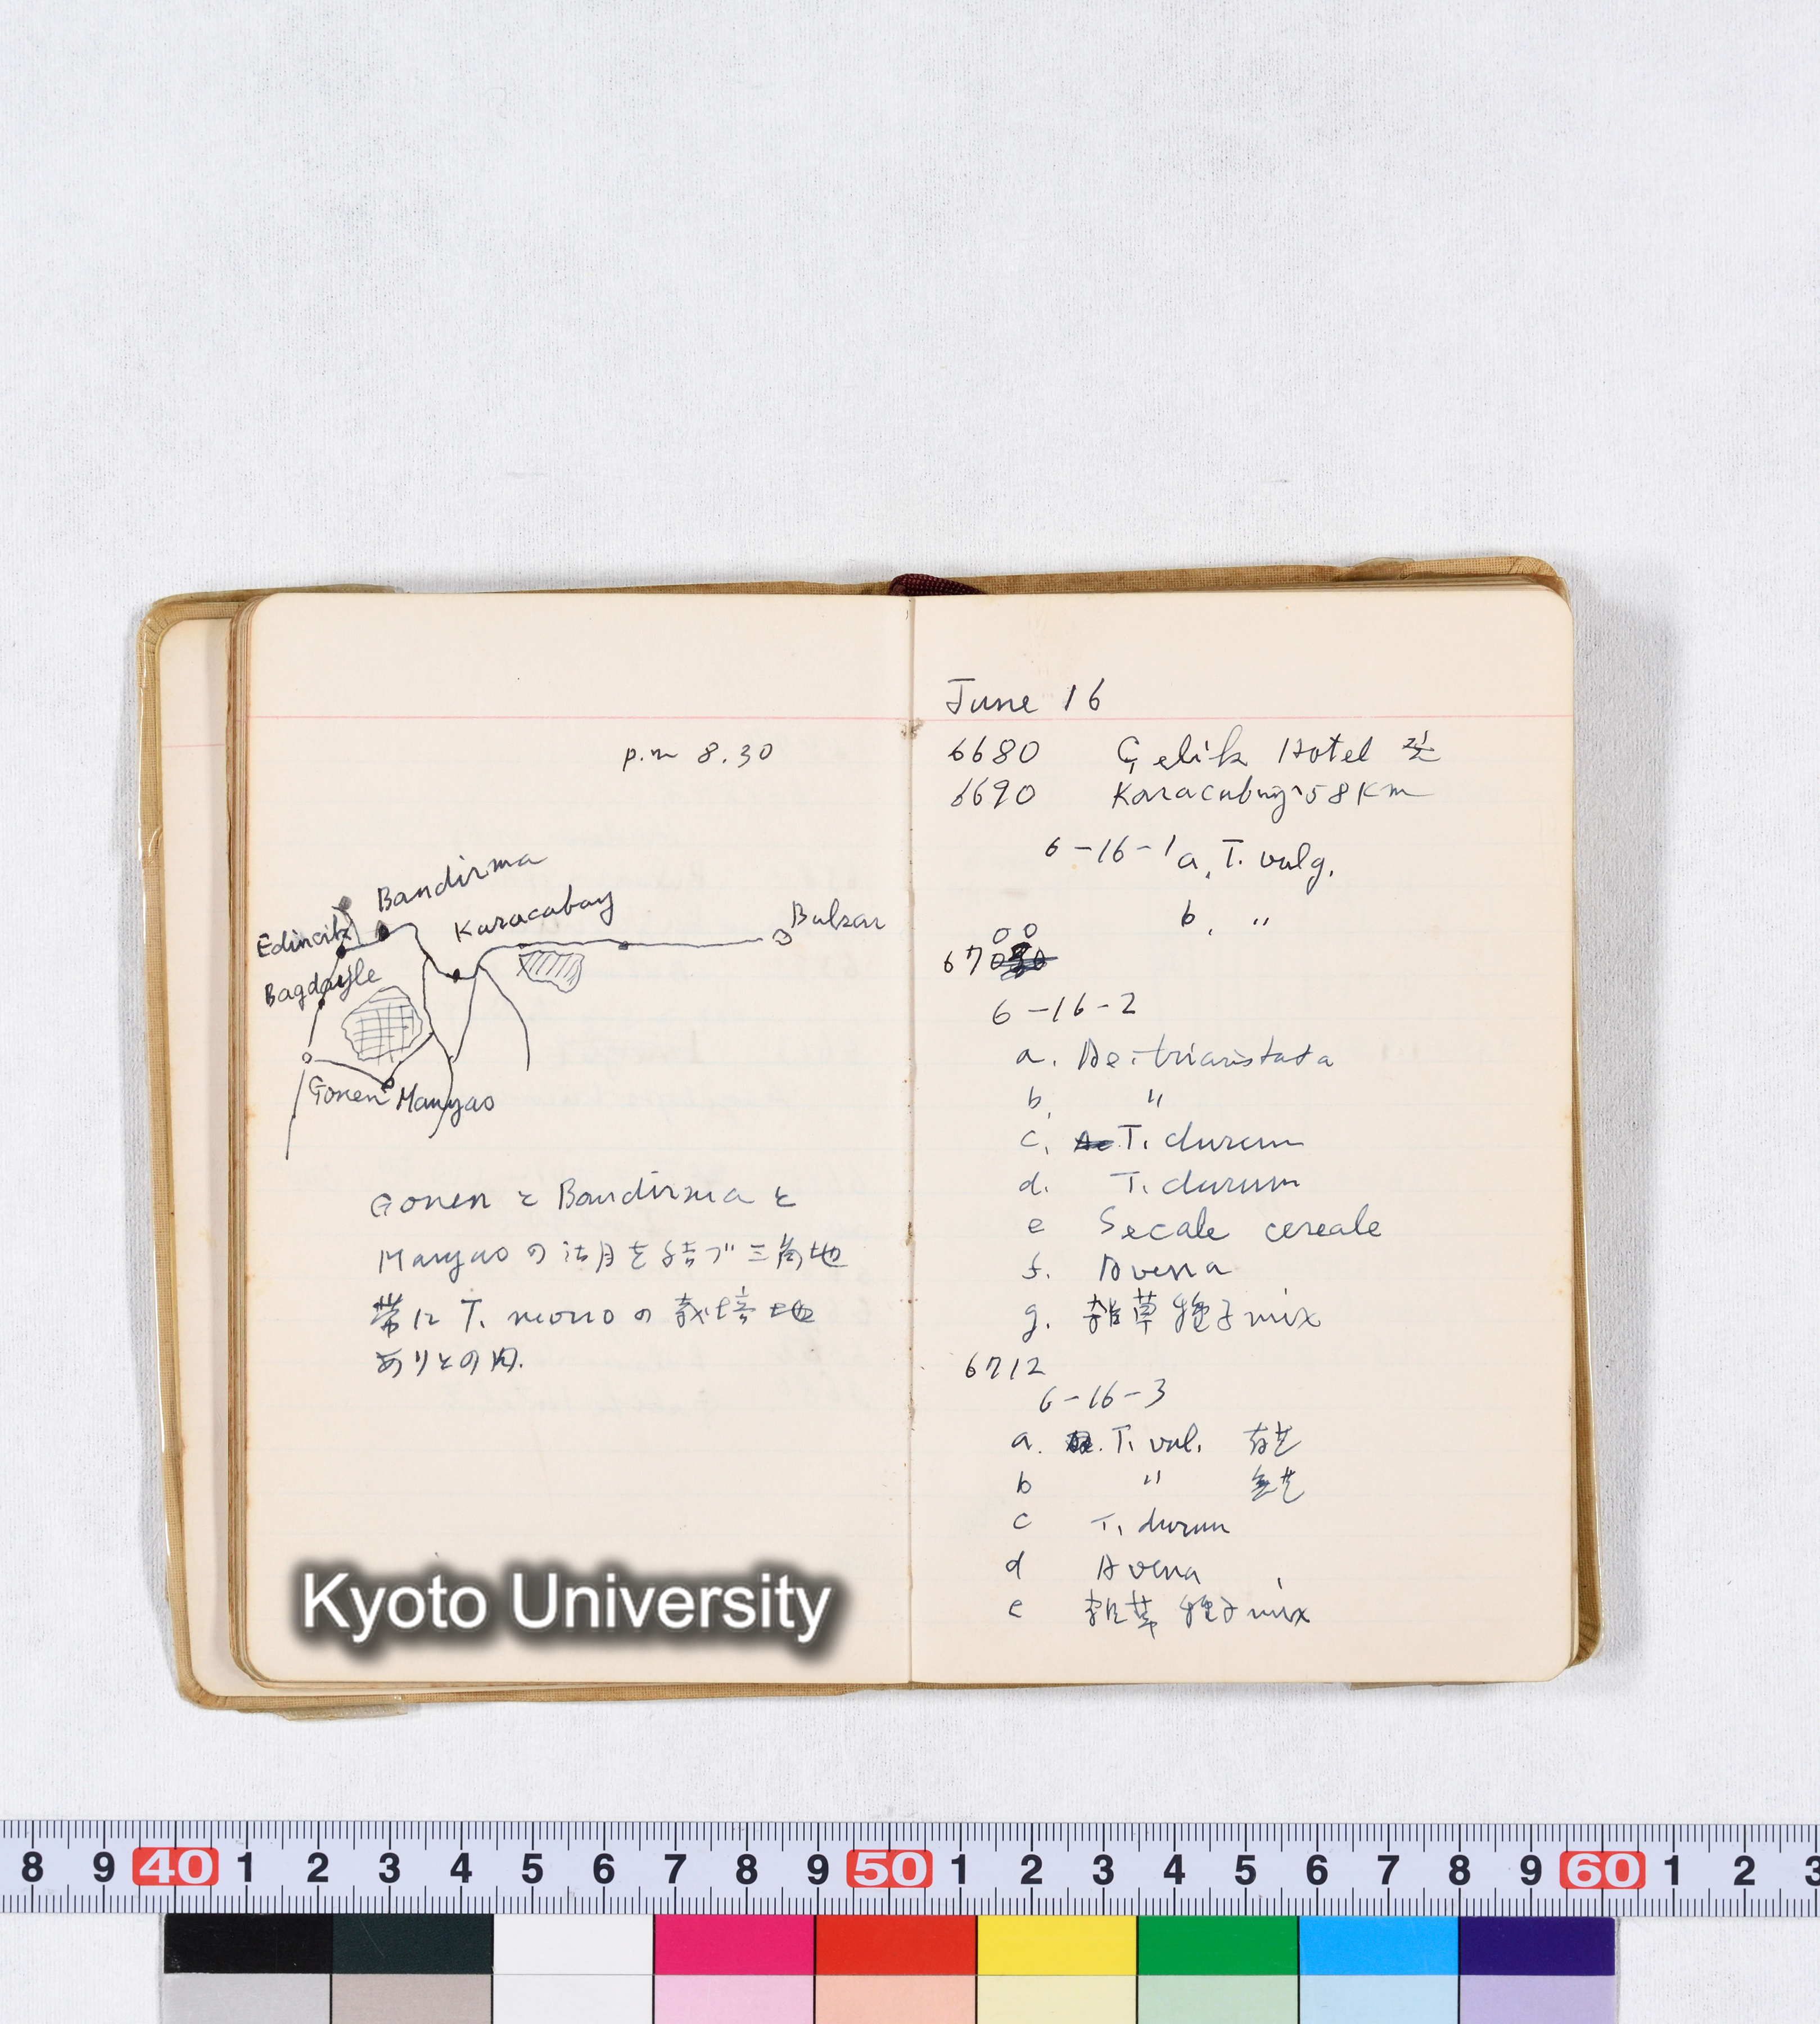 p.m 8.30
Bandirma
Karacabay
Edincik
Bagdayle
Gonen
Manyao
GonenとBandirmaと
Manyaoの沽月を結ブ三角地
帯にT. monoの栽培地
ありとの内.
Kyoto University
June 16
6680 Çelik Hotel 発
6690 Karacabayへ58Km
6-16-1 a. T. vulg.
b. "
6700
6-16-2
a. Ae. triaristata
b. "
c. T. durum
d. T. durum
e Secale cereale
f. Avena
g. 雑草種子mix
6712
6-16-3
a. T. vul. 有芒
b " 無芒
c T. durum
d Avena
e 雑草種子mix
8 9 40 1 2 3 4 5 6 7 8 9 50 1 2 3 4 5 6 7 8 9 60 1 2 3